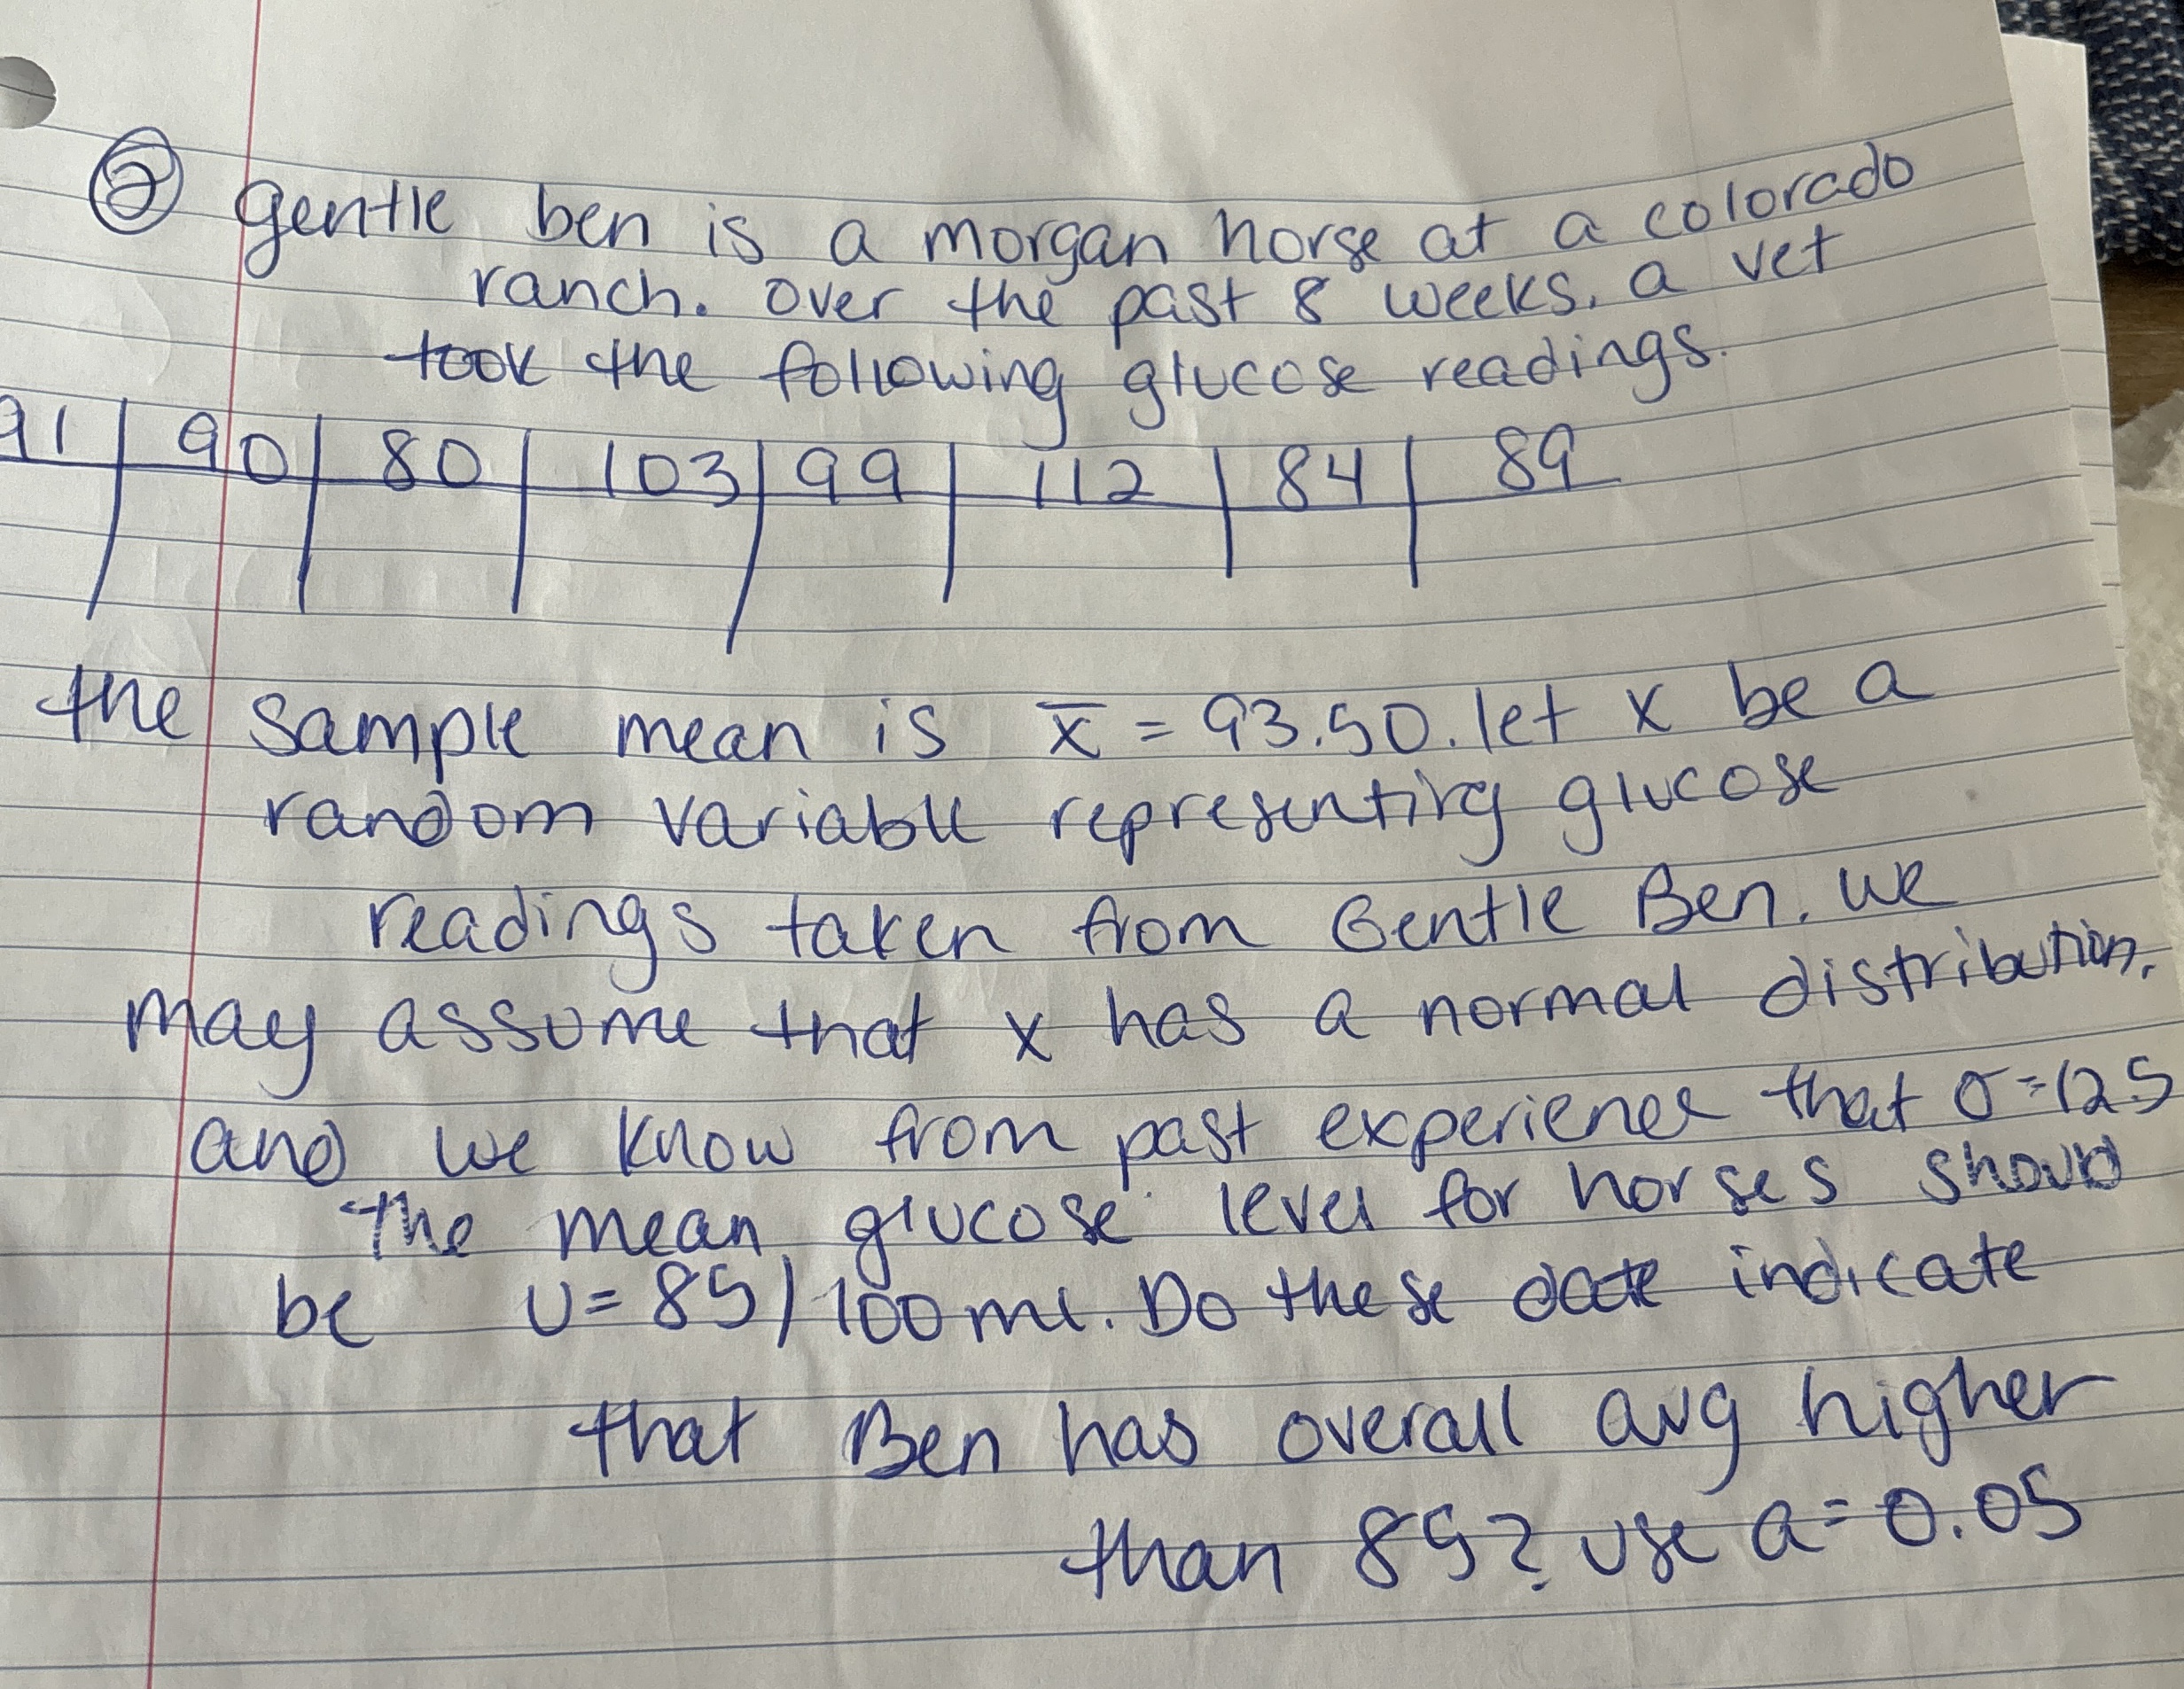 ② gentle ben is a morgan horse at a colorado
ranch. over the past 8 weeks. a vet
took the following glucose readings.
91 | 90 | 80 | 103 | 99 | 112 | 84 | 89
the sample mean is x̄ = 93.50. let x be a
random variable representing glucose
readings taken from Gentle Ben. we
may assume that x has a normal distribution.
and we know from past experience that σ=12.5
the mean glucose level for horses should
be u = 85/100ml. Do these date indicate
that Ben has overall avg higher
than 85? use a=0.05